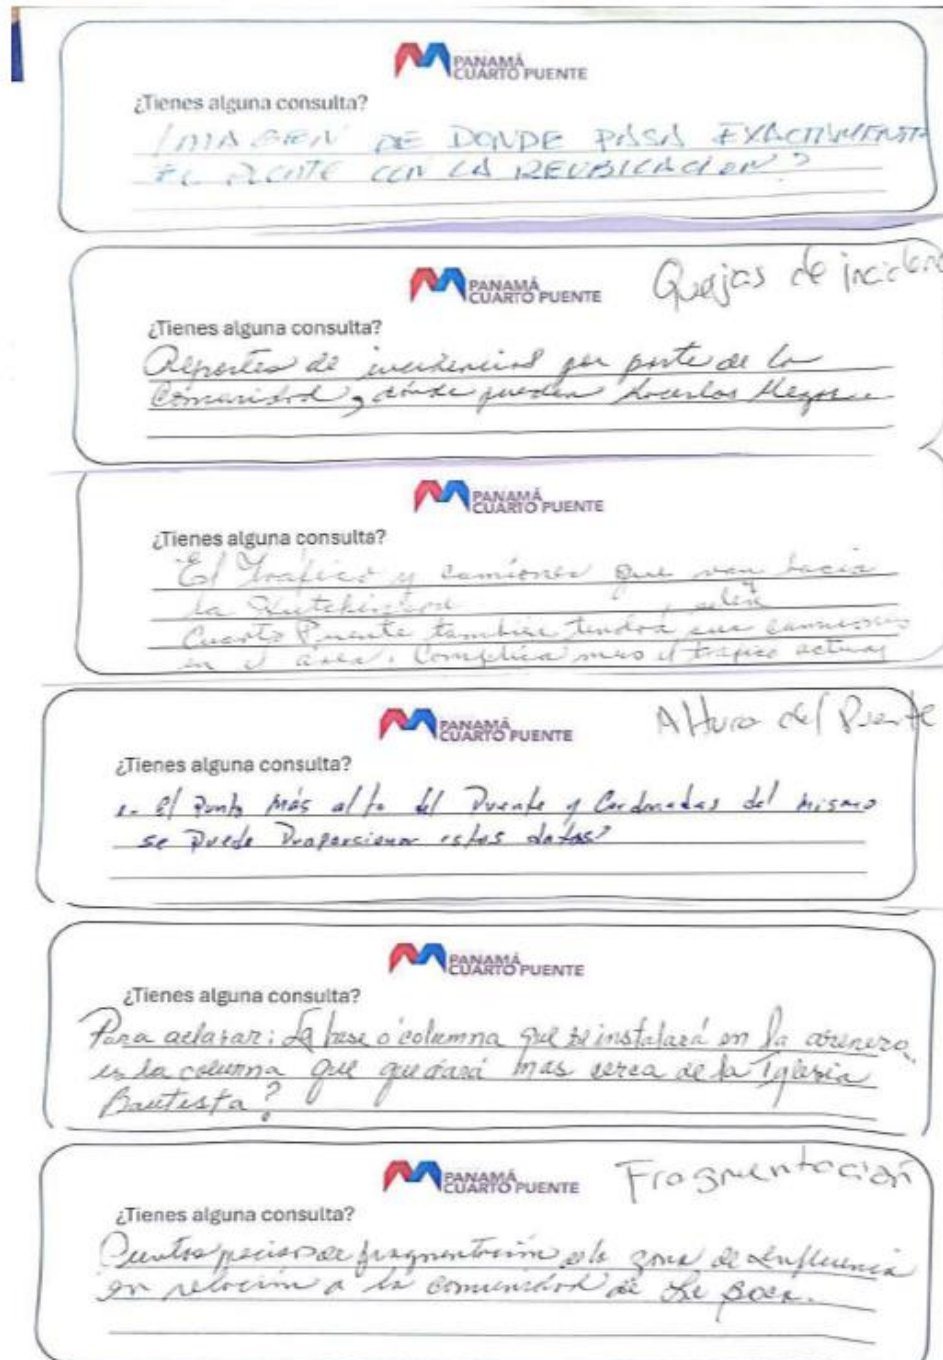 PANAMÁ
CUARTO PUENTE
¿Tienes alguna consulta?
IMAGEN DE DONDE PASA EXACTAMENTE
EL PUENTE CON LA REUBICACION?
PANAMÁ
CUARTO PUENTE
Quejas de
¿Tienes alguna consulta?
Reportes de incidencias por parte de la
Comunidad, dónde pueden hacerlos llegar.
PANAMÁ
CUARTO PUENTE
¿Tienes alguna consulta?
El Trafico y camiones que van hacia
la
Cuarto Puente tambien tendrá sus camiones
en el área. Complica mas el trafico actual
PANAMÁ
CUARTO PUENTE
Altura del Puente
¿Tienes alguna consulta?
1- El Punto más alto del Puente y Cordenadas del mismo
se Puede Proporcionar estos datos?
PANAMÁ
CUARTO PUENTE
¿Tienes alguna consulta?
Para aclarar: La base o columna que se instalará en la arenera,
es la columna que quedará mas cerca de la Iglesia
Bautista?
PANAMÁ
CUARTO PUENTE
Fragmentación
¿Tienes alguna consulta?
fragmentación de la zona de influencia
en relación a la comunidad de La Boca.